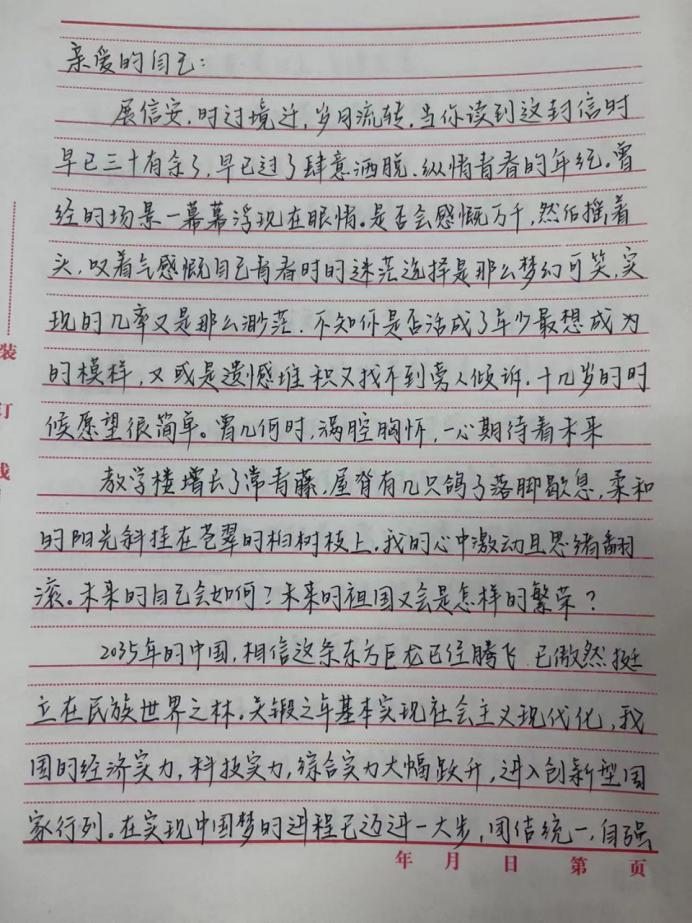 亲爱的自己:
展信安,时过境迁,岁月流转,当你读到这封信时
早已三十有余了,早已过了肆意洒脱、纵情青春的年纪。曾
经的场景一幕幕浮现在眼情。是否会感慨万千,然后摇着
头,叹着气感慨自己青春时的迷茫选择是那么梦幻可笑,实
现的几率又是那么渺茫.不知你是否活成了年少最想成为
的模样,又或是遗憾堆积又找不到旁人倾诉.十几岁的时
候愿望很简单。曾几何时,满腔胸怀,一心期待着未来
教学楼增长了常青藤,屋脊有几只鸽子落脚歇息,柔和
的阳光斜挂在苍翠的桐树枝上.我的心中激动且思绪翻
滚。未来的自己会如何?未来的祖国又会是怎样的繁荣?
2035年的中国,相信这条东方巨龙已经腾飞 已傲然挺
立在民族世界之林.关锻之年基本实现社会主义现代化,我
国的经济实力,科技实力,综合实力大幅跃升,进入创新型国
家行列。在实现中国梦的进程已迈进一大步,团结统一,自强
年 月 日 第 页
装
订
线